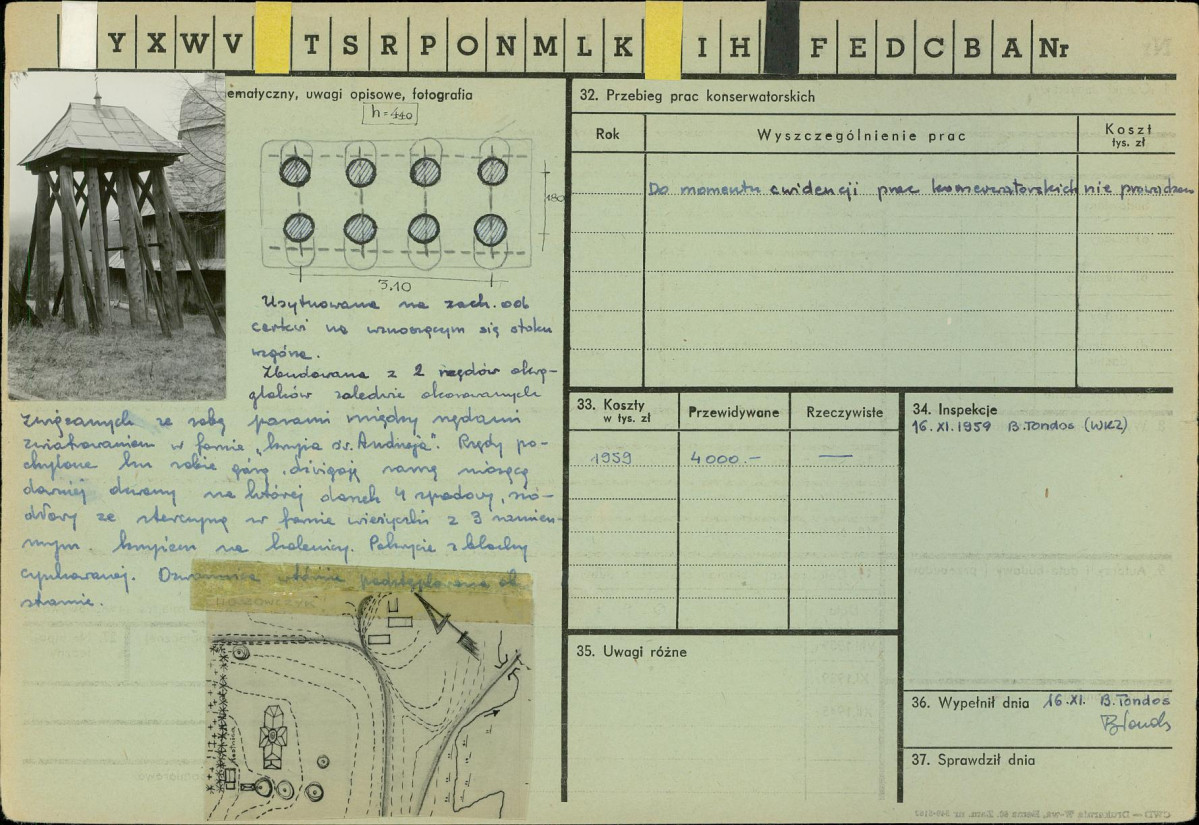 Y X W V T S R P O N M L K I H F E D C B A Nr
ematyczny, uwagi opisowe, fotografia
h=440
180
3.10
Usytuowana na zach. od
cerkwi na wznoszącym się stoku
wzgórza.
Zbudowana z 2 rzędów okrą-
glaków zaledwie okorowanych
związanych ze sobą parami między rzędami
zwiatrowaniem w formie „krzyża św. Andrzeja". Rzędy po-
chylone ku sobie górą dźwigają ramę niosącą
dawniej dzwony na której daszek 4 spadowy, sio-
dłowy ze sterczyną w formie wieżyczki z 3 ramien-
nym krzyżem na kalenicy. Pokrycie z blachy
cynkowanej. Dzwonnica
stronie.
HOSZOWCZYK
32. Przebieg prac konserwatorskich
Rok
Wyszczególnienie prac
Koszt
tys. zł
Do momentu ewidencji prac konserwatorskich nie prowadzono
33. Koszty
w tys. zł
Przewidywane
Rzeczywiste
1959
4000.—
—
34. Inspekcje
16. XI. 1959 B. Tondos (WKZ)
35. Uwagi różne
36. Wypełnił dnia 16. XI. B. Tondos
BTondos
37. Sprawdził dnia